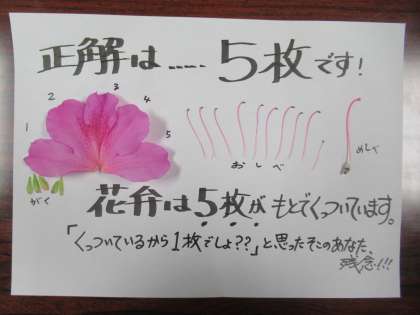 正解は……５枚です！
1 2 3 4 5
がく
おしべ
めしべ
花弁は５枚がもとでくっついています。
「くっついているから１枚でしょ??」と思ったそこのあなた、
残念!!!